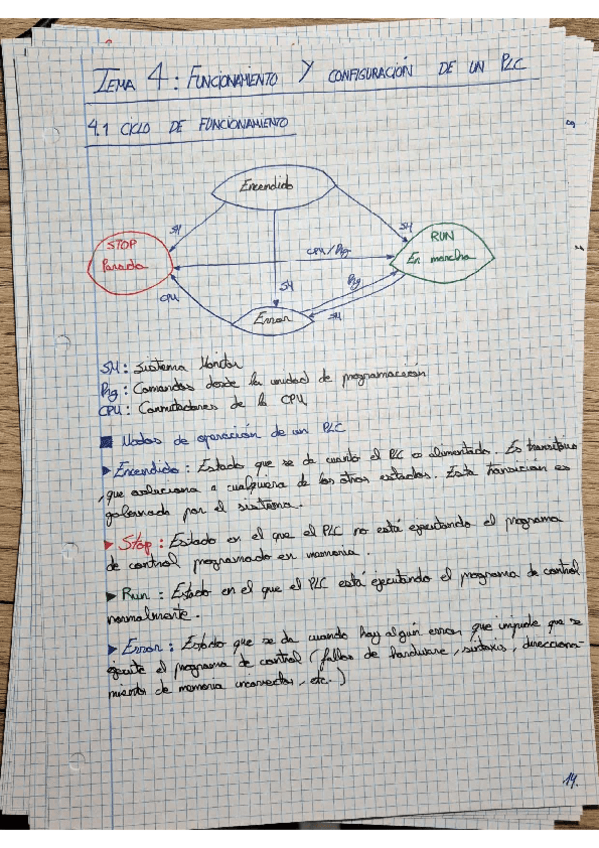 TEMA 4: FUNCIONAMIENTO Y CONFIGURACIÓN DE UN PLC
4.1 CICLO DE FUNCIONAMIENTO
Encendido
SM
SM
STOP
Parada
RUN
En marcha
CPU/Prg
SM
Prg
CPU
Error
SM
SM: Sistema Monitor
Prg: Comandos desde la unidad de programación
CPU: Conmutadores de la CPU
Modos de operación de un PLC
Encendido: Estado que se da cuando el PLC es alimentado. Es transitorio
, que evoluciona a cualquiera de los otros estados. Esta transición es
gobernada por el sistema.
Stop: Estado en el que el PLC no está ejecutando el programa
de control programado en memoria.
Run: Estado en el que el PLC está ejecutando el programa de control
normalmente.
Error: Estado que se da cuando hay algún error que impide que se
ejecute el programa de control (fallos de hardware, sintaxis, direcciona-
mientos de memoria incorrectos, etc.)
14.